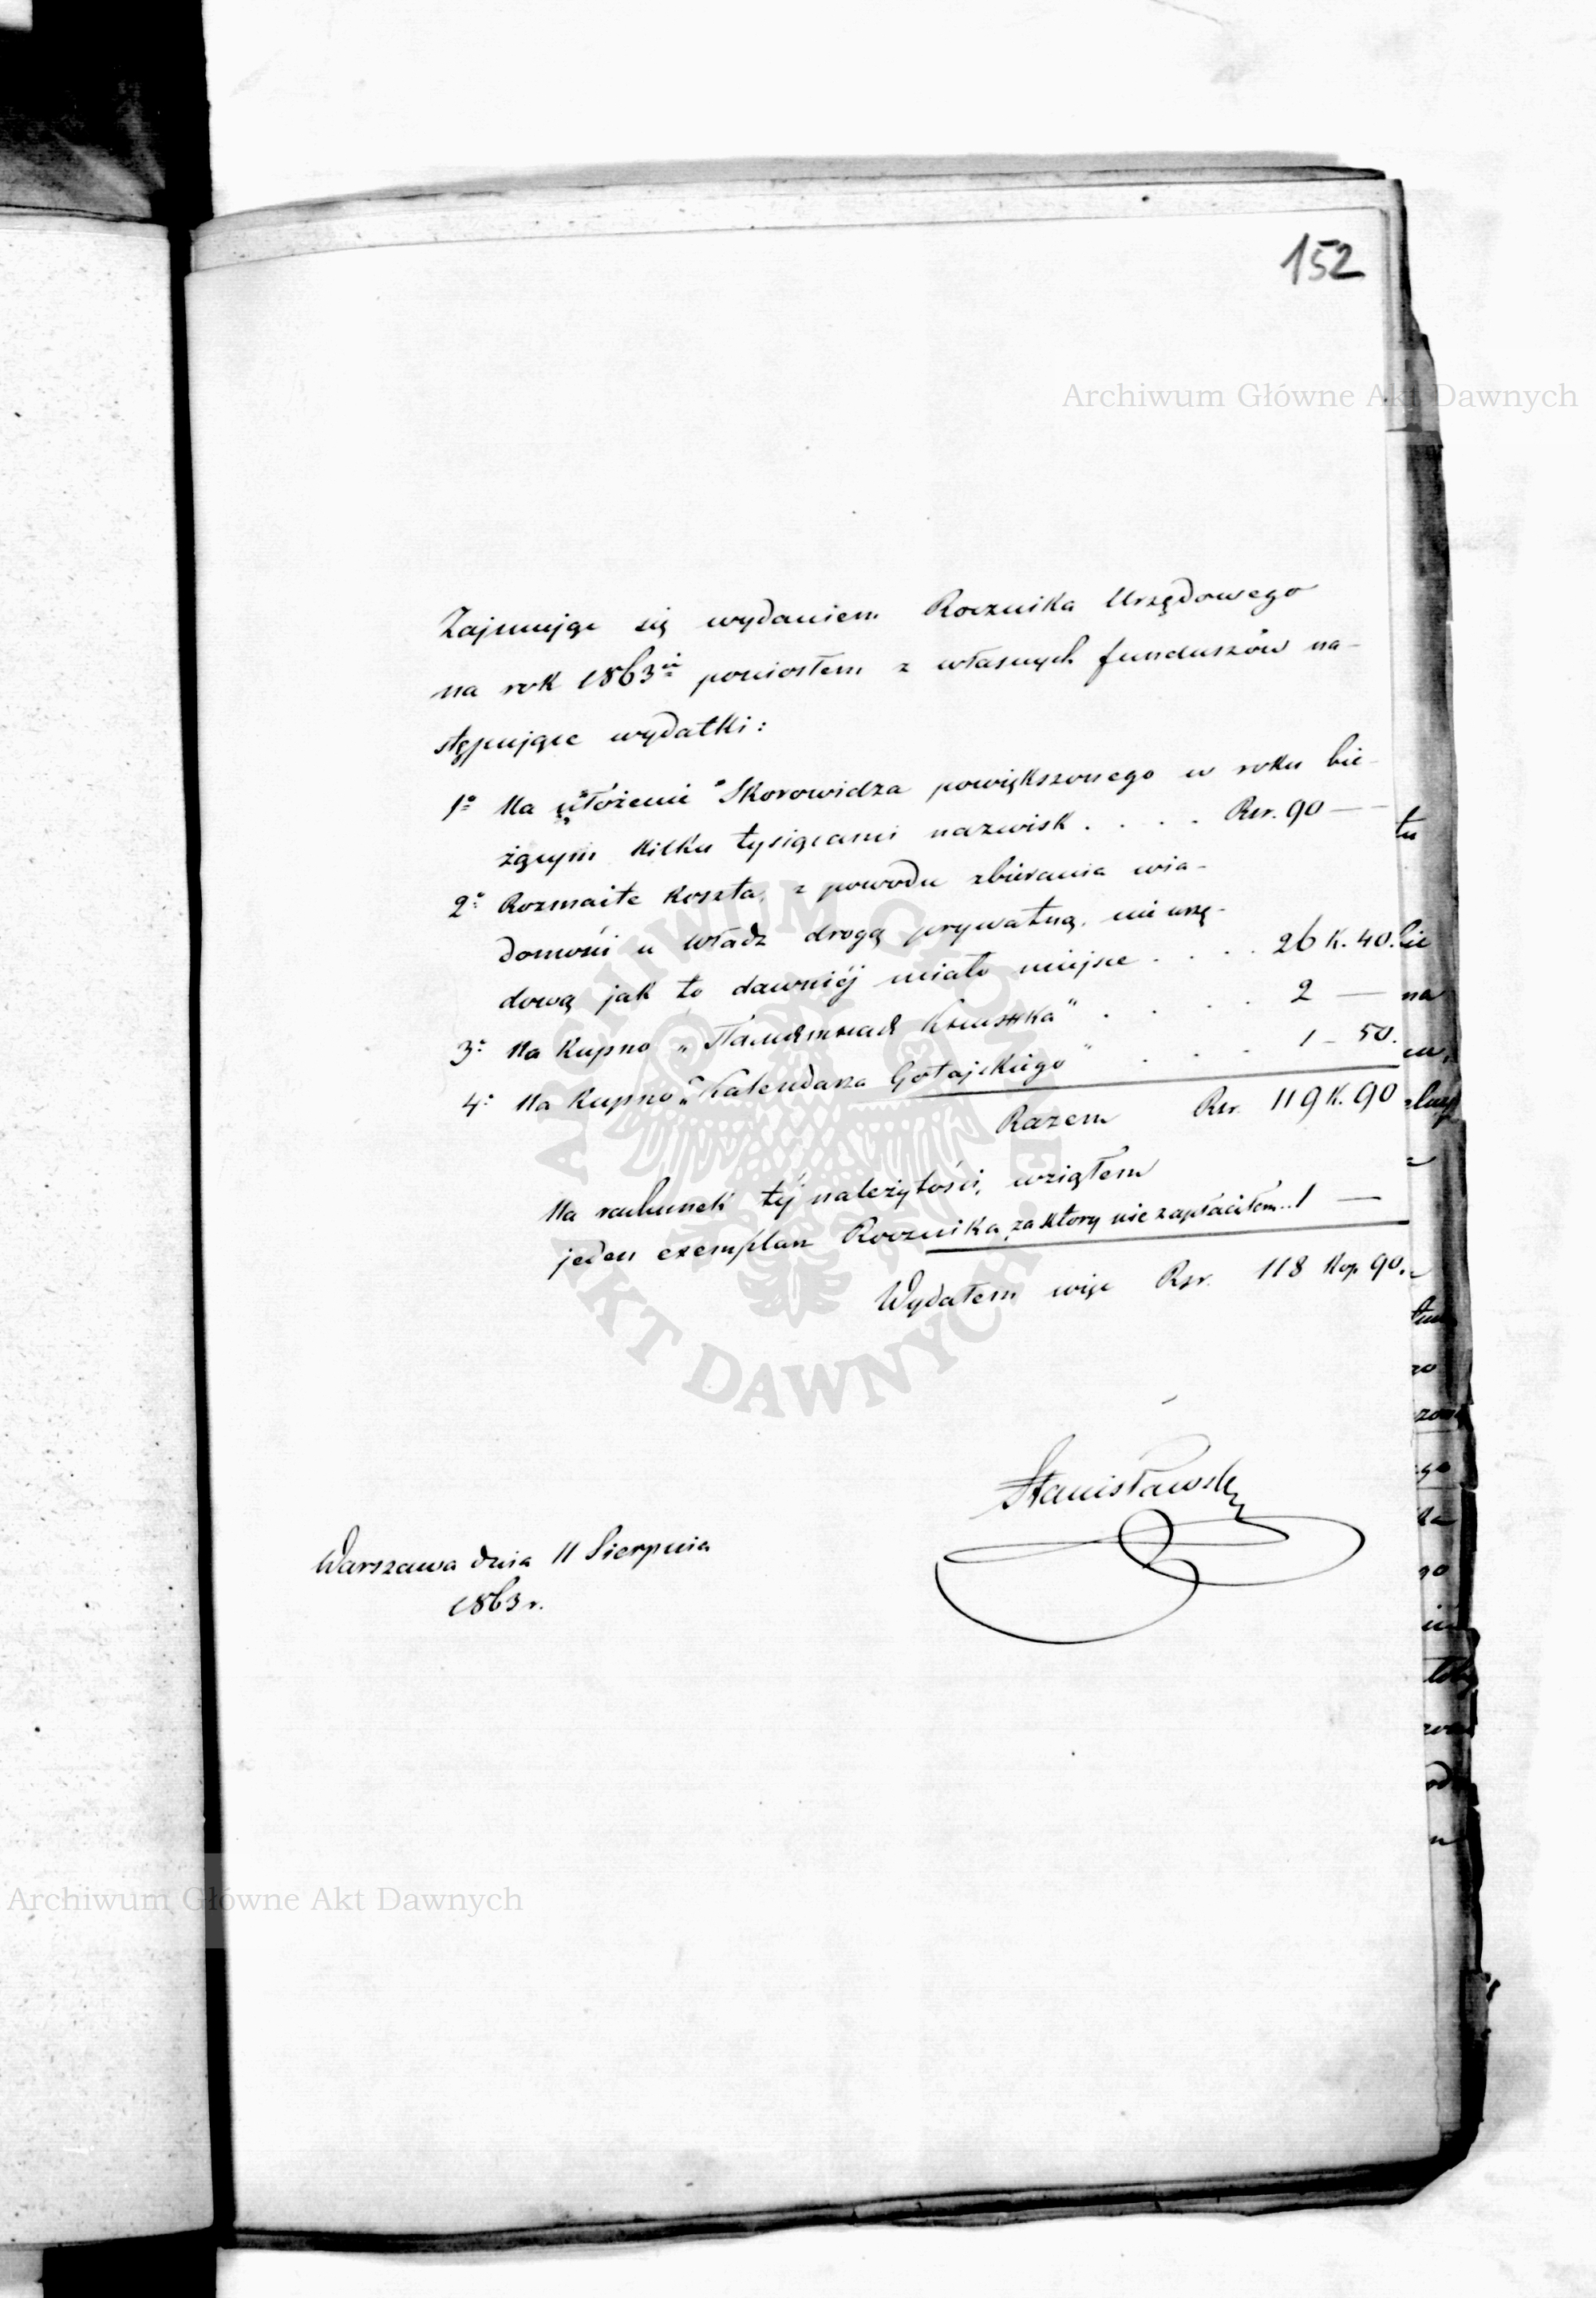 152
Archiwum Główne Akt Dawnych
Zajmując się wydaniem Rocznika Urzędowego
na rok 1863 poniosłem z własnych funduszów na-
stępujące wydatki:
1º Na ułożenie "Skorowidza powiększonego w roku bie-
żącym kilku tysiącami nazwisk . . . . Rsr. 90 —
2º Rozmaite koszta, z powodu zbierania wia-
domości u Władz drogą prywatną, nie urzę-
dową jak to dawniéj miało miejsce . . . . 26 K. 40.
3º Na kupno „ . . . . 2 —
4º Na kupno „Kalendarza Gotajskiego" . . . 1 – 50.
Razem Rsr. 119 K. 90
Na rachunek téj należytości, wziąłem
jeden exemplarz Rocznika, za który nie zapłaciłem .. 1 —
Wydałem więc Rsr. 118 Kop 90.
Stanisławski
Warszawa dnia 11 Sierpnia
1863 r.
ARCHIWUM GŁÓWNE AKT DAWNYCH
Archiwum Główne Akt Dawnych